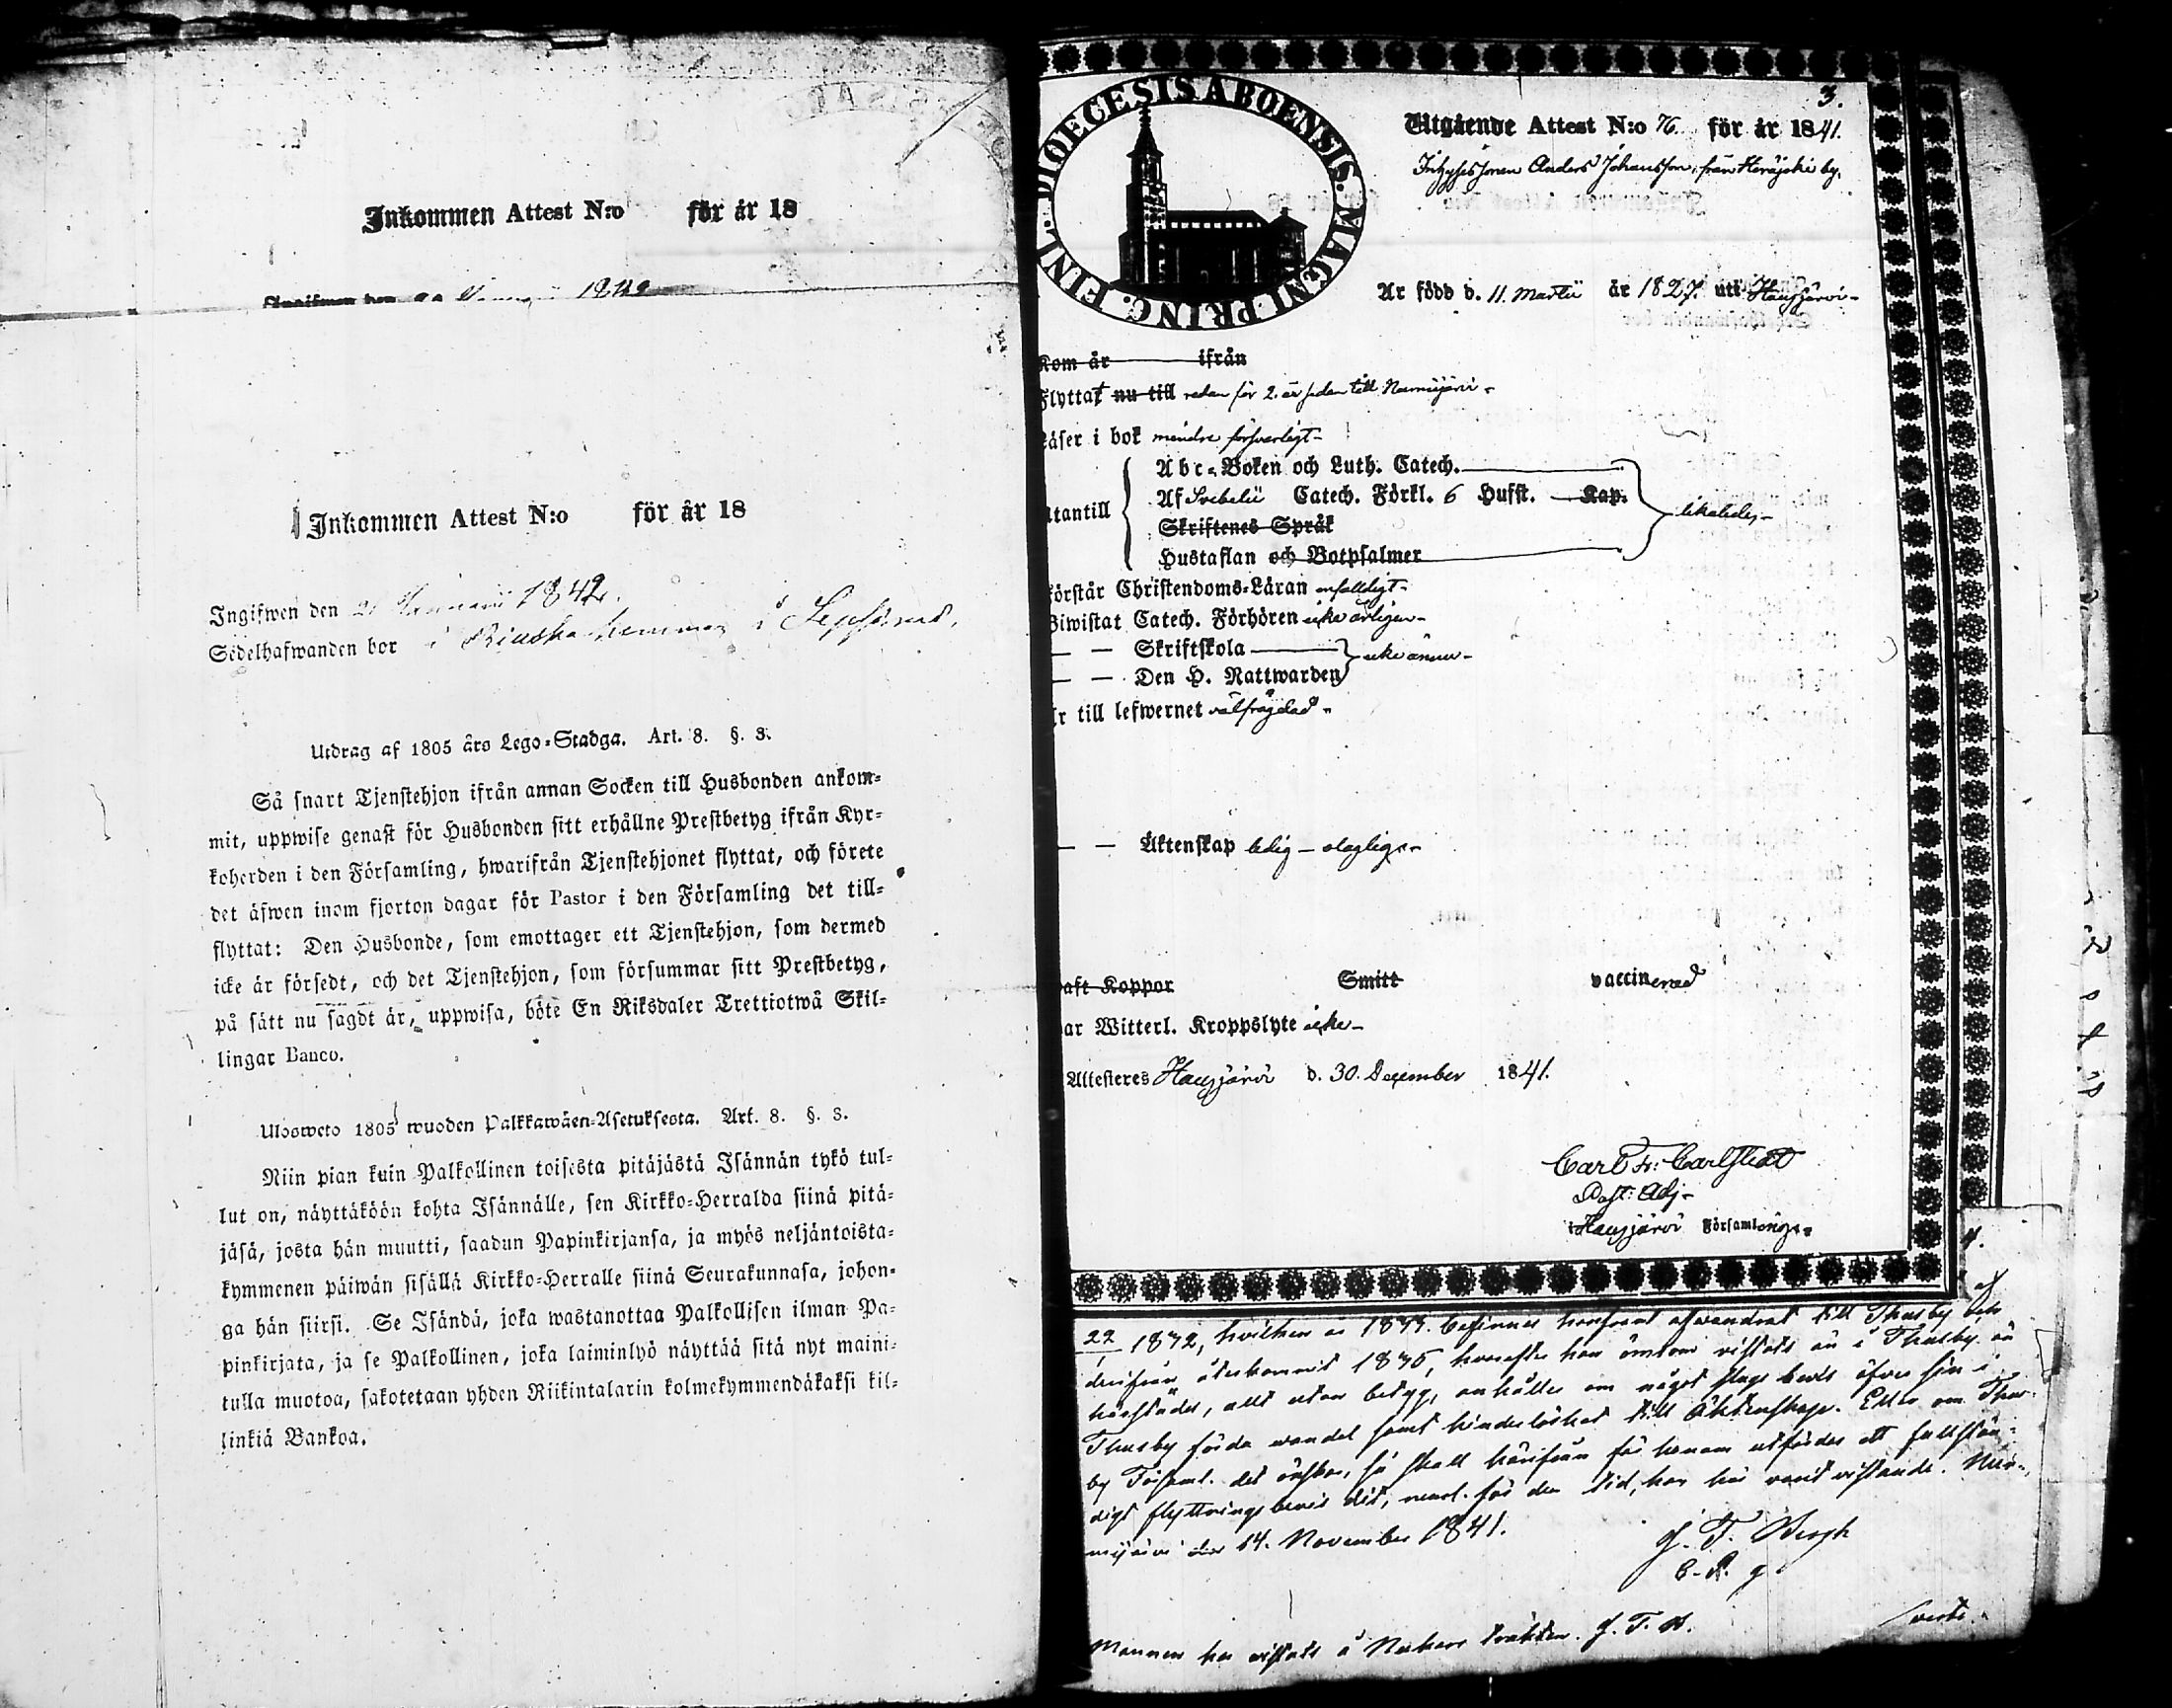 Inkommen Attest N:o för år 18
1842
Inkommen Attest N:o för år 18
Ingifwen den 2 Januarii 1842.
Sedelhafwanden bor i
Utdrag af 1805 års Lego-Stadga. Art. 8. §. 3.
Så snart Tjenstehjon ifrån annan Socken till Husbonden ankom-
mit, uppwise genast för Husbonden sitt erhållne Prestbetyg ifrån Kyr-
koherden i den Församling, hwarifrån Tjenstehjonet flyttat, och förete
det äfwen inom fjorton dagar för Pastor i den Församling det till-
flyttat: Den Husbonde, som emottager ett Tjenstehjon, som dermed
icke är försedt, och det Tjenstehjon, som försummar sitt Prestbetyg,
på sätt nu sagdt är, uppwisa, böte En Riksdaler Trettiotwå Skil-
lingar Banco.
Ulosweto 1805 wuoden Palkkawäen-Asetuksesta. Art. 8. §. 3.
Niin pian kuin Palkollinen toisesta pitäjästä Isännän tykö tul-
lut on, näyttäköön kohta Isännälle, sen Kirkko-Herralda siinä pitä-
jäsä, josta hän muutti, saadun Papinkirjansa, ja myös neljäntoista-
kymmenen päiwän sisällä Kirkko-Herralle siinä Seurakunnasa, johon-
ga hän siirsi. Se Isändä, joka wastanottaa Palkollisen ilman Pa-
pinkirjata, ja se Palkollinen, joka laiminlyö näyttää sitä nyt maini-
tulla muotoa, sakotetaan yhden Riikintalarin kolmekymmendäkaksi kil-
linkiä Bankoa.
DIOECESIS ABOENSIS. MAGNI PRINC. FINL.
3.
Utgående Attest N:o 76. för år 1841.
Inhysessonen Anders Johansson, från Heräjoki by.
Är född d. 11 Martii år 1827. uti Hausjärvi
Kom år ifrån
Flyttat nu till redan för 2. år sedan till Nurmijärvi
Läser i bok mindre försvarligt
Utantill
Abc-Boken och Luth. Catech.
Af Svebelii Catech. Förkl. 6 Hufst. Kap.
Skriftenes Språk
Hustaflan och Botpsalmer
likaledes
förstår Christendoms-Läran enfaldigt
Biwistat Catech. Förhören icke årligen
— — Skriftskola
— — Den H. Nattwarden
icke ännu
Är till lefwernet välfrägdad
— — Äktenskap ledig — olaglig
haft Koppor Smitt vaccinerad
Har Witterl. Kroppslyte icke
Attesteres Hausjärvi d. 30. December 1841.
Carl Fr: Carlstedt
Past: Adj
i Hausjärvi Församling
4.
22 1832, hvilken år 1834. befinnes afvandrat till Thusby och
derifrån återkommit 1836, hvarefter han vistats än i Thusby än
härstädes, allt utan betyg, anhålles om något slags bevis öfver sin i
Thusby förda vandel samt hinderlöshet till Äktenskap. Eller om Thus-
by Församl. det önskar, så skall härifrån för honom utfärdas ett fullstän-
digt flyttningsbevis dit, neml. för den tid, han här varit vistande. Nur-
mijärvi den 14. November 1841.
J. F. Bergh
C. P. g
Mannen har vistats å trakten. J. F. B.
verte